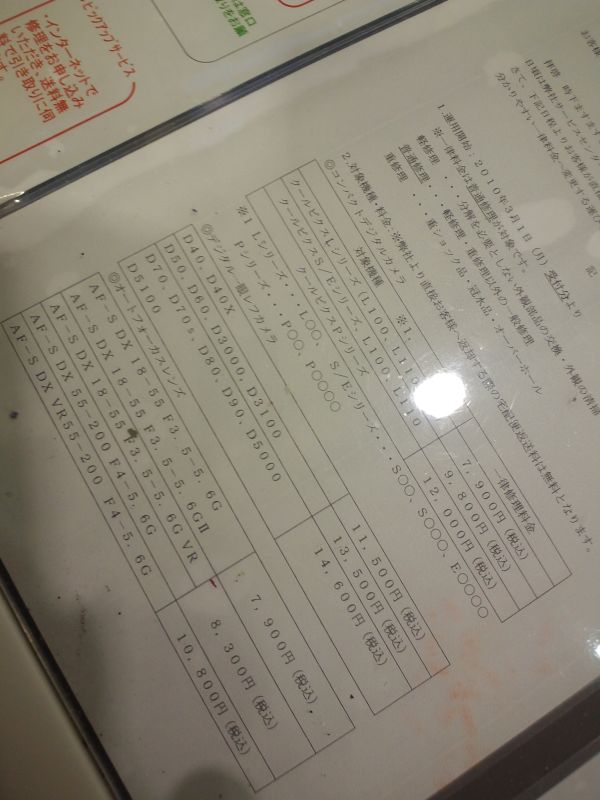 ピックアップサービス
・インターネットで
修理をお申し込み
いただき、送料無
料で引き取りに伺
は窓口
お客様
拝啓 時下ますます
日頃は弊社サービスセンタ
さて、下記日程よりお客様が直接
分かりやすい一律料金へ変更する運び
記
1.運用開始:2010年3月1日(月)受付分より
※一律料金は普通修理が対象です。
軽修理・・・分解を必要としない外観部品の交換・外観の清掃
普通修理・・・軽修理・重修理以外の一般修理
重修理・・・重ショック品・冠水品・オーバーホール
2.対象機種・料金:※弊社より直接お客様へ返送する際の宅配便返送料は無料となります。
◎コンパクトデジタルカメラ ※1.
対象機種 一律修理料金
クールピクスLシリーズ(L100、L110 7,900円(税込)
クールピクスS/Eシリーズ、L100、L110 9,800円(税込)
クールピクスPシリーズ 12,000円(税込)
※1 Lシリーズ・・・L○○、 S/Eシリーズ・・・S○○、S○○○、E○○○○
Pシリーズ・・・P○○、P○○○○
◎デジタル一眼レフカメラ
D40、D40X 11,500円(税込)
D50、D60、D3000、D3100 13,500円(税込)
D70、D70s、D80、D90、D5000 14,600円(税込)
D5100
◎オートフォーカスレンズ
AF-S DX 18-55 F3.5-5.6G 7,900円(税込)
AF-S DX 18-55 F3.5-5.6GⅡ
AF-S DX 18-55 F3.5-5.6G VR 8,300円(税込)
AF-S DX 55-200 F4-5.6G
AF-S DX VR55-200 F4-5.6G 10,800円(税込)